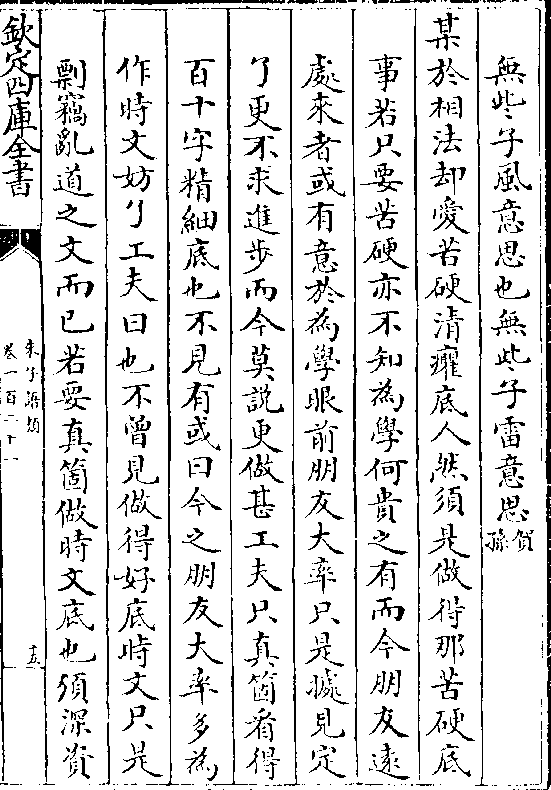 無些子風意思也無些子雷意思賀孫
某於相法却愛苦硬清癯底人然須是做得那苦硬底
事若只要苦硬亦不知為學何貴之有而今朋友逺
處來者或有意於為學眼前朋友大率只是據見定
了更不求進步而今莫説更做甚工夫只真箇看得
百十字精細底也不見有或曰今之朋友大率多為
作時文妨了工夫曰也不曾見做得好底時文只是
剽竊亂道之文而已若要真箇做時文底也須深資
欽定四庫全書
朱子語類
卷一百二十一
十五